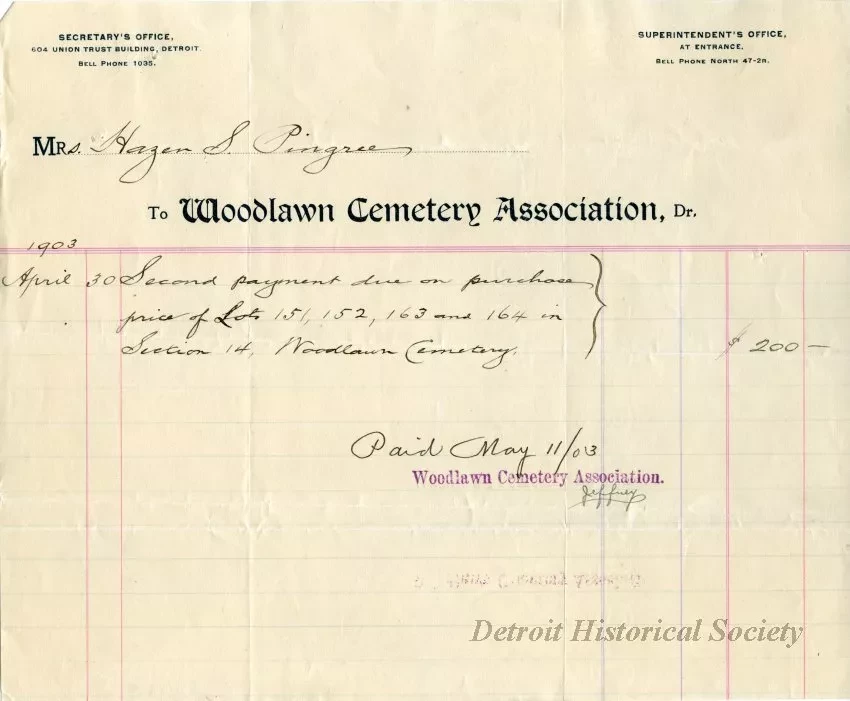 SECRETARY'S OFFICE,
604 UNION TRUST BUILDING, DETROIT.
BELL PHONE 1035.
SUPERINTENDENT'S OFFICE,
AT ENTRANCE.
BELL PHONE NORTH 47-2R.
MRS. Hazen S. Pingree
To Woodlawn Cemetery Association, Dr.
1903
April 30 Second payment due on purchase
price of Lots 151, 152, 163 and 164 in
Section 14, Woodlawn Cemetery. $ 200 —
Paid May 11/03
Woodlawn Cemetery Association.
Jeffrey
Detroit Historical Society